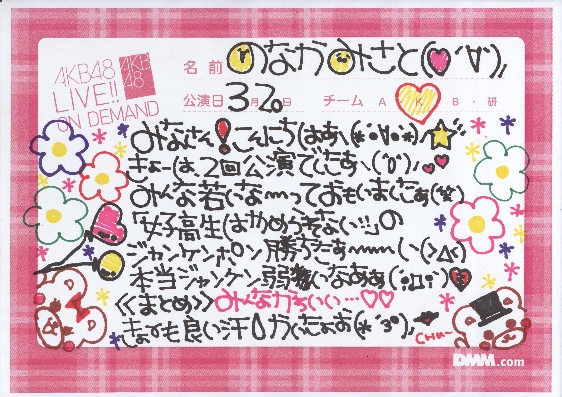 AKB48
LIVE!!
ON DEMAND
AKB
48
名前 のなかみさと(♥´∀`)
公演日 3月20日 チーム A K B・研
みなさん!こんにちはぁぁ(*´∀`*)ノ
きょーは、2回公演でしたぁ、(´0`)ノ
みんな若いな〜っておもいましたぁ
「女子高生はやめらんない!!」の
ジャンケンポン勝ちたぁーーーい(>△<)
本当ジャンケン弱いなぁぁ(;Д;`)
≪まとめ≫みんなかわいい…♡♡
きょーも良い汗かいたぁぁ(*´3`)
CHU-
DMM.com